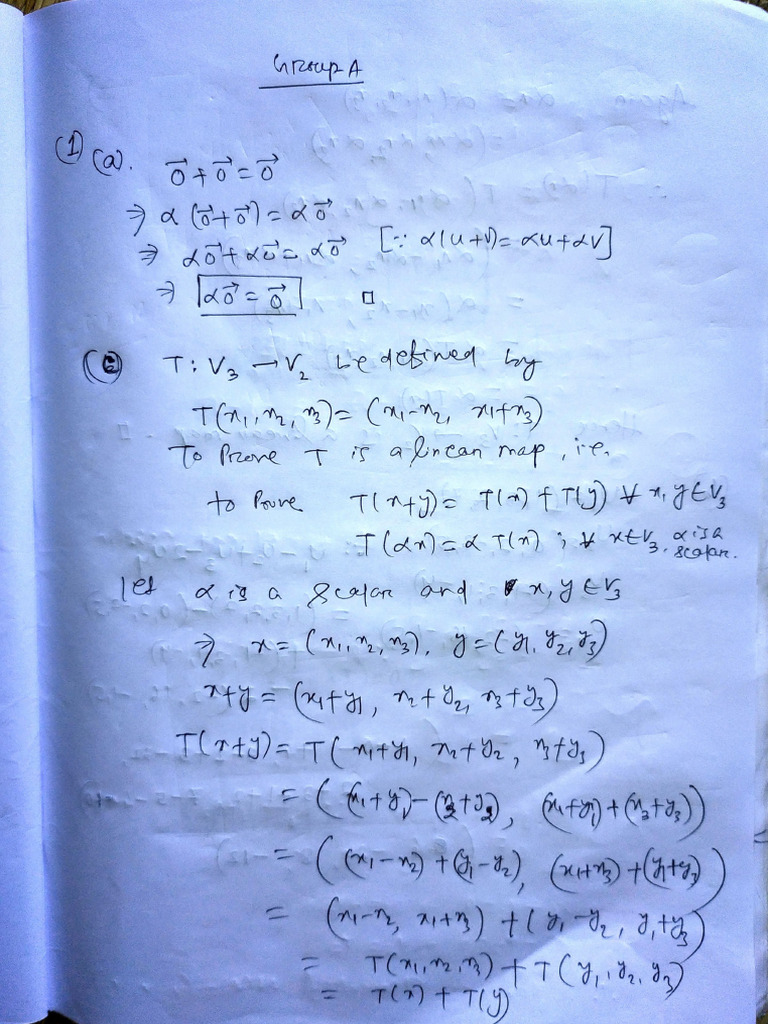 Group A
(1) (a). 0⃗ + 0⃗ = 0⃗
⇒ α (0⃗ + 0⃗) = α 0⃗
⇒ α0⃗ + α0⃗ = α0⃗ [∵ α(u+v) = αu + αv]
⇒ α0⃗ = 0⃗ □
T : V₃ → V₂ be defined by
T(x₁, x₂, x₃) = (x₁-x₂, x₁+x₃)
To Prove T is a linear map, i.e.
to Prove T(x+y) = T(x) + T(y) ∀ x, y ∈ V₃
T(αx) = α T(x) ; ∀ x ∈ V₃, α is a scalar.
let α is a scalar and x, y ∈ V₃
⇒ x = (x₁, x₂, x₃), y = (y₁, y₂, y₃)
x+y = (x₁+y₁, x₂+y₂, x₃+y₃)
T(x+y) = T(x₁+y₁, x₂+y₂, x₃+y₃)
= ((x₁+y₁)-(x₂+y₂), (x₁+y₁)+(x₃+y₃))
= ((x₁-x₂)+(y₁-y₂), (x₁+x₃)+(y₁+y₃))
= (x₁-x₂, x₁+x₃) + (y₁-y₂, y₁+y₃)
= T(x₁, x₂, x₃) + T(y₁, y₂, y₃)
= T(x) + T(y)